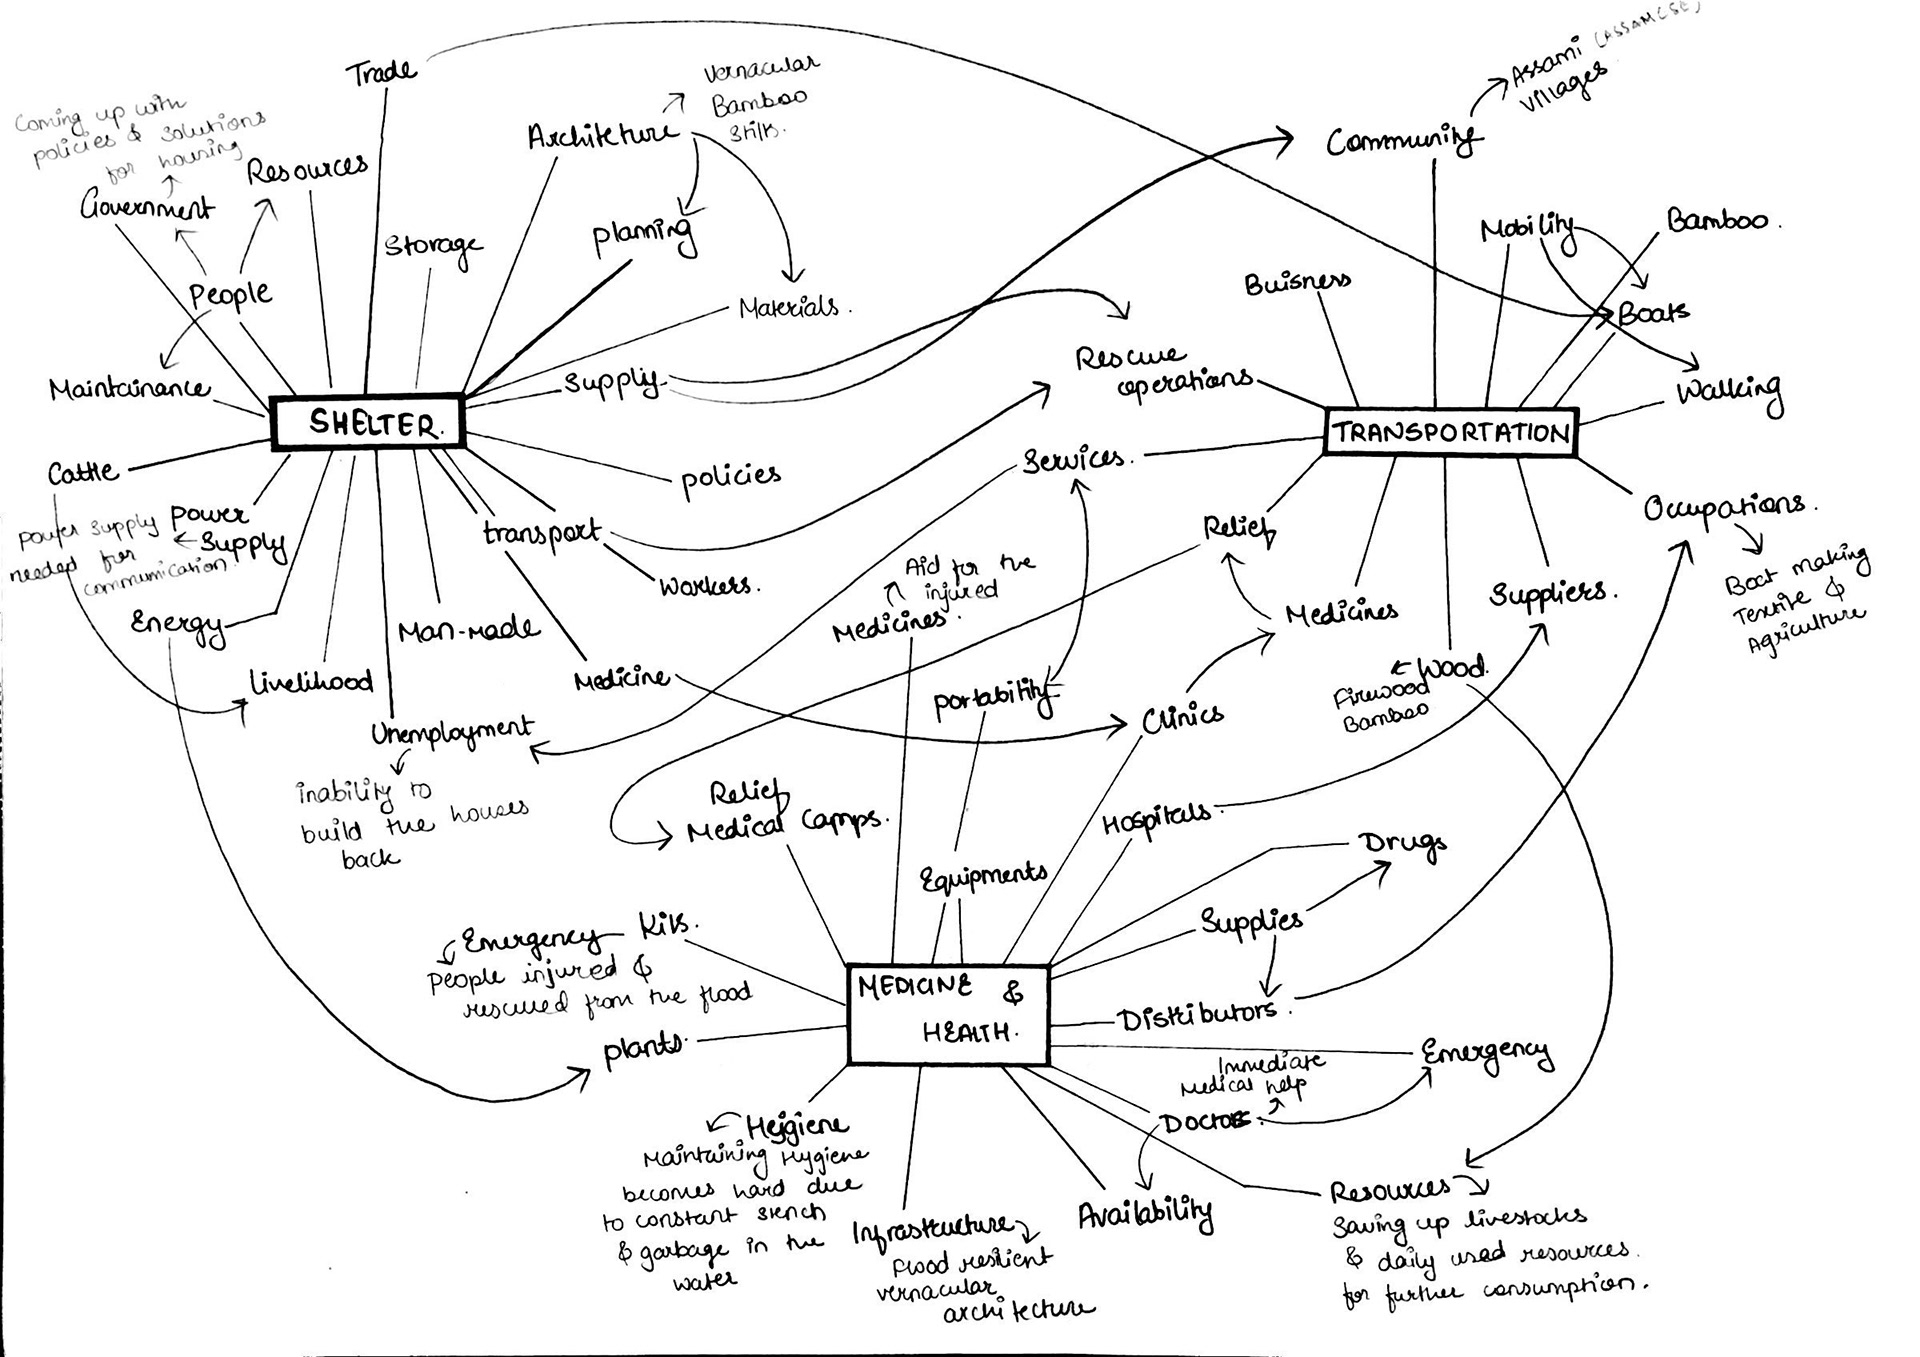 Trade
Coming up with
policies & solutions
for housing
Government
Resources
Architeture
vernacular
Bamboo
Stilts.
planning
Storage
People
Materials.
Maintainance
Supply
SHELTER.
Cattle
policies
power
Supply
power supply
needed for
communication.
transport
Workers.
Energy
Man-made
livelihood
Medicine
Unemployment
inability to
build the houses
back
Community
Assami (ASSAMESE)
Villages
Mobility
Bamboo.
Buisness
Boats
Rescue
operations
Walking
TRANSPORTATION
Services.
Occupations.
Boat making
Textile &
Agriculture
Relief
Medicines
Suppliers.
Wood.
Firewood
Bamboo
Aid for the
injured
Medicines.
portability
Clinics
Relief
Medical Camps.
Hospitals.
Equipments
Drugs
Supplies
Emergency Kits.
People injured &
rescued from the flood
MEDICINE &
HEALTH.
Distributors.
plants.
Emergency
Immediate
Medical help
Doctors.
Hejgiene
Maintaining Hygiene
becomes hard due
to constant stench
& garbage in the
water
Infrastructure
flood resilient
vernacular
architecture
Availability
Resources
Saving up livestocks
& daily used resources.
for further consumption.